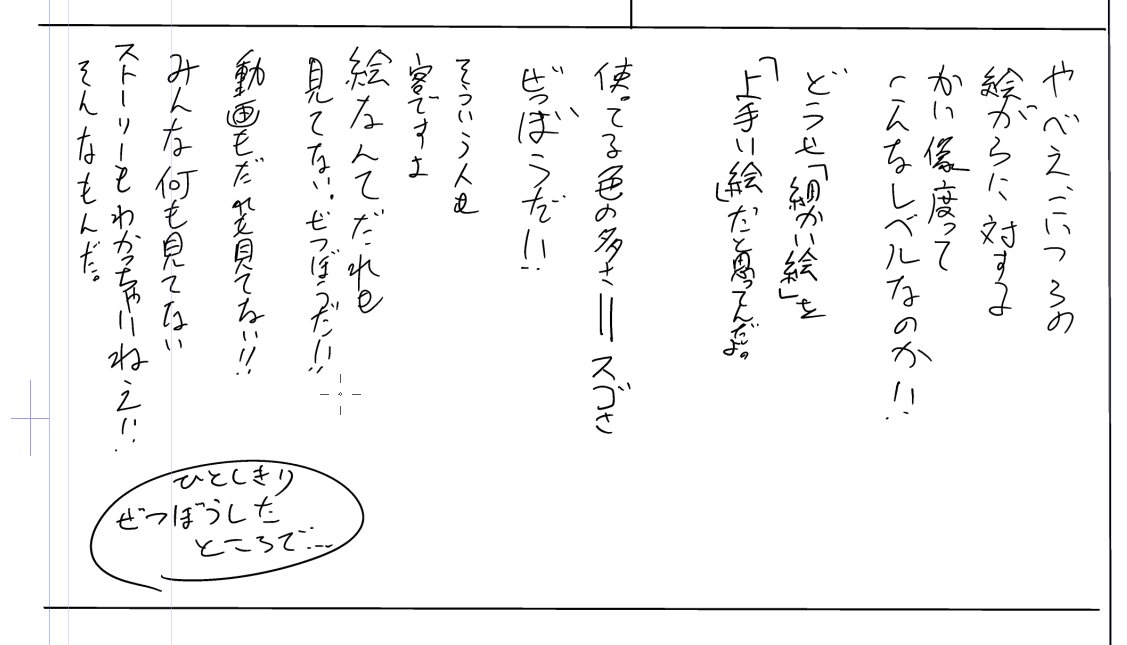 やべえこいつらの
絵がらに対する
かい像度って
こんなレベルなのか!!
どうせ「細かい絵」を
「上手い絵」だと思ってんだよ。
使ってる色の多さ=スゴさ
ぜつぼうだ!!
そういう人も
客ですよ
絵なんてだれも
見てない。ぜつぼうだ!!
動画もだれも見てない!!
みんな何も見てない
ストーリーもわかっちゃいねえ!!
そんなもんだ。
ひとしきり
ぜつぼうした
ところで……